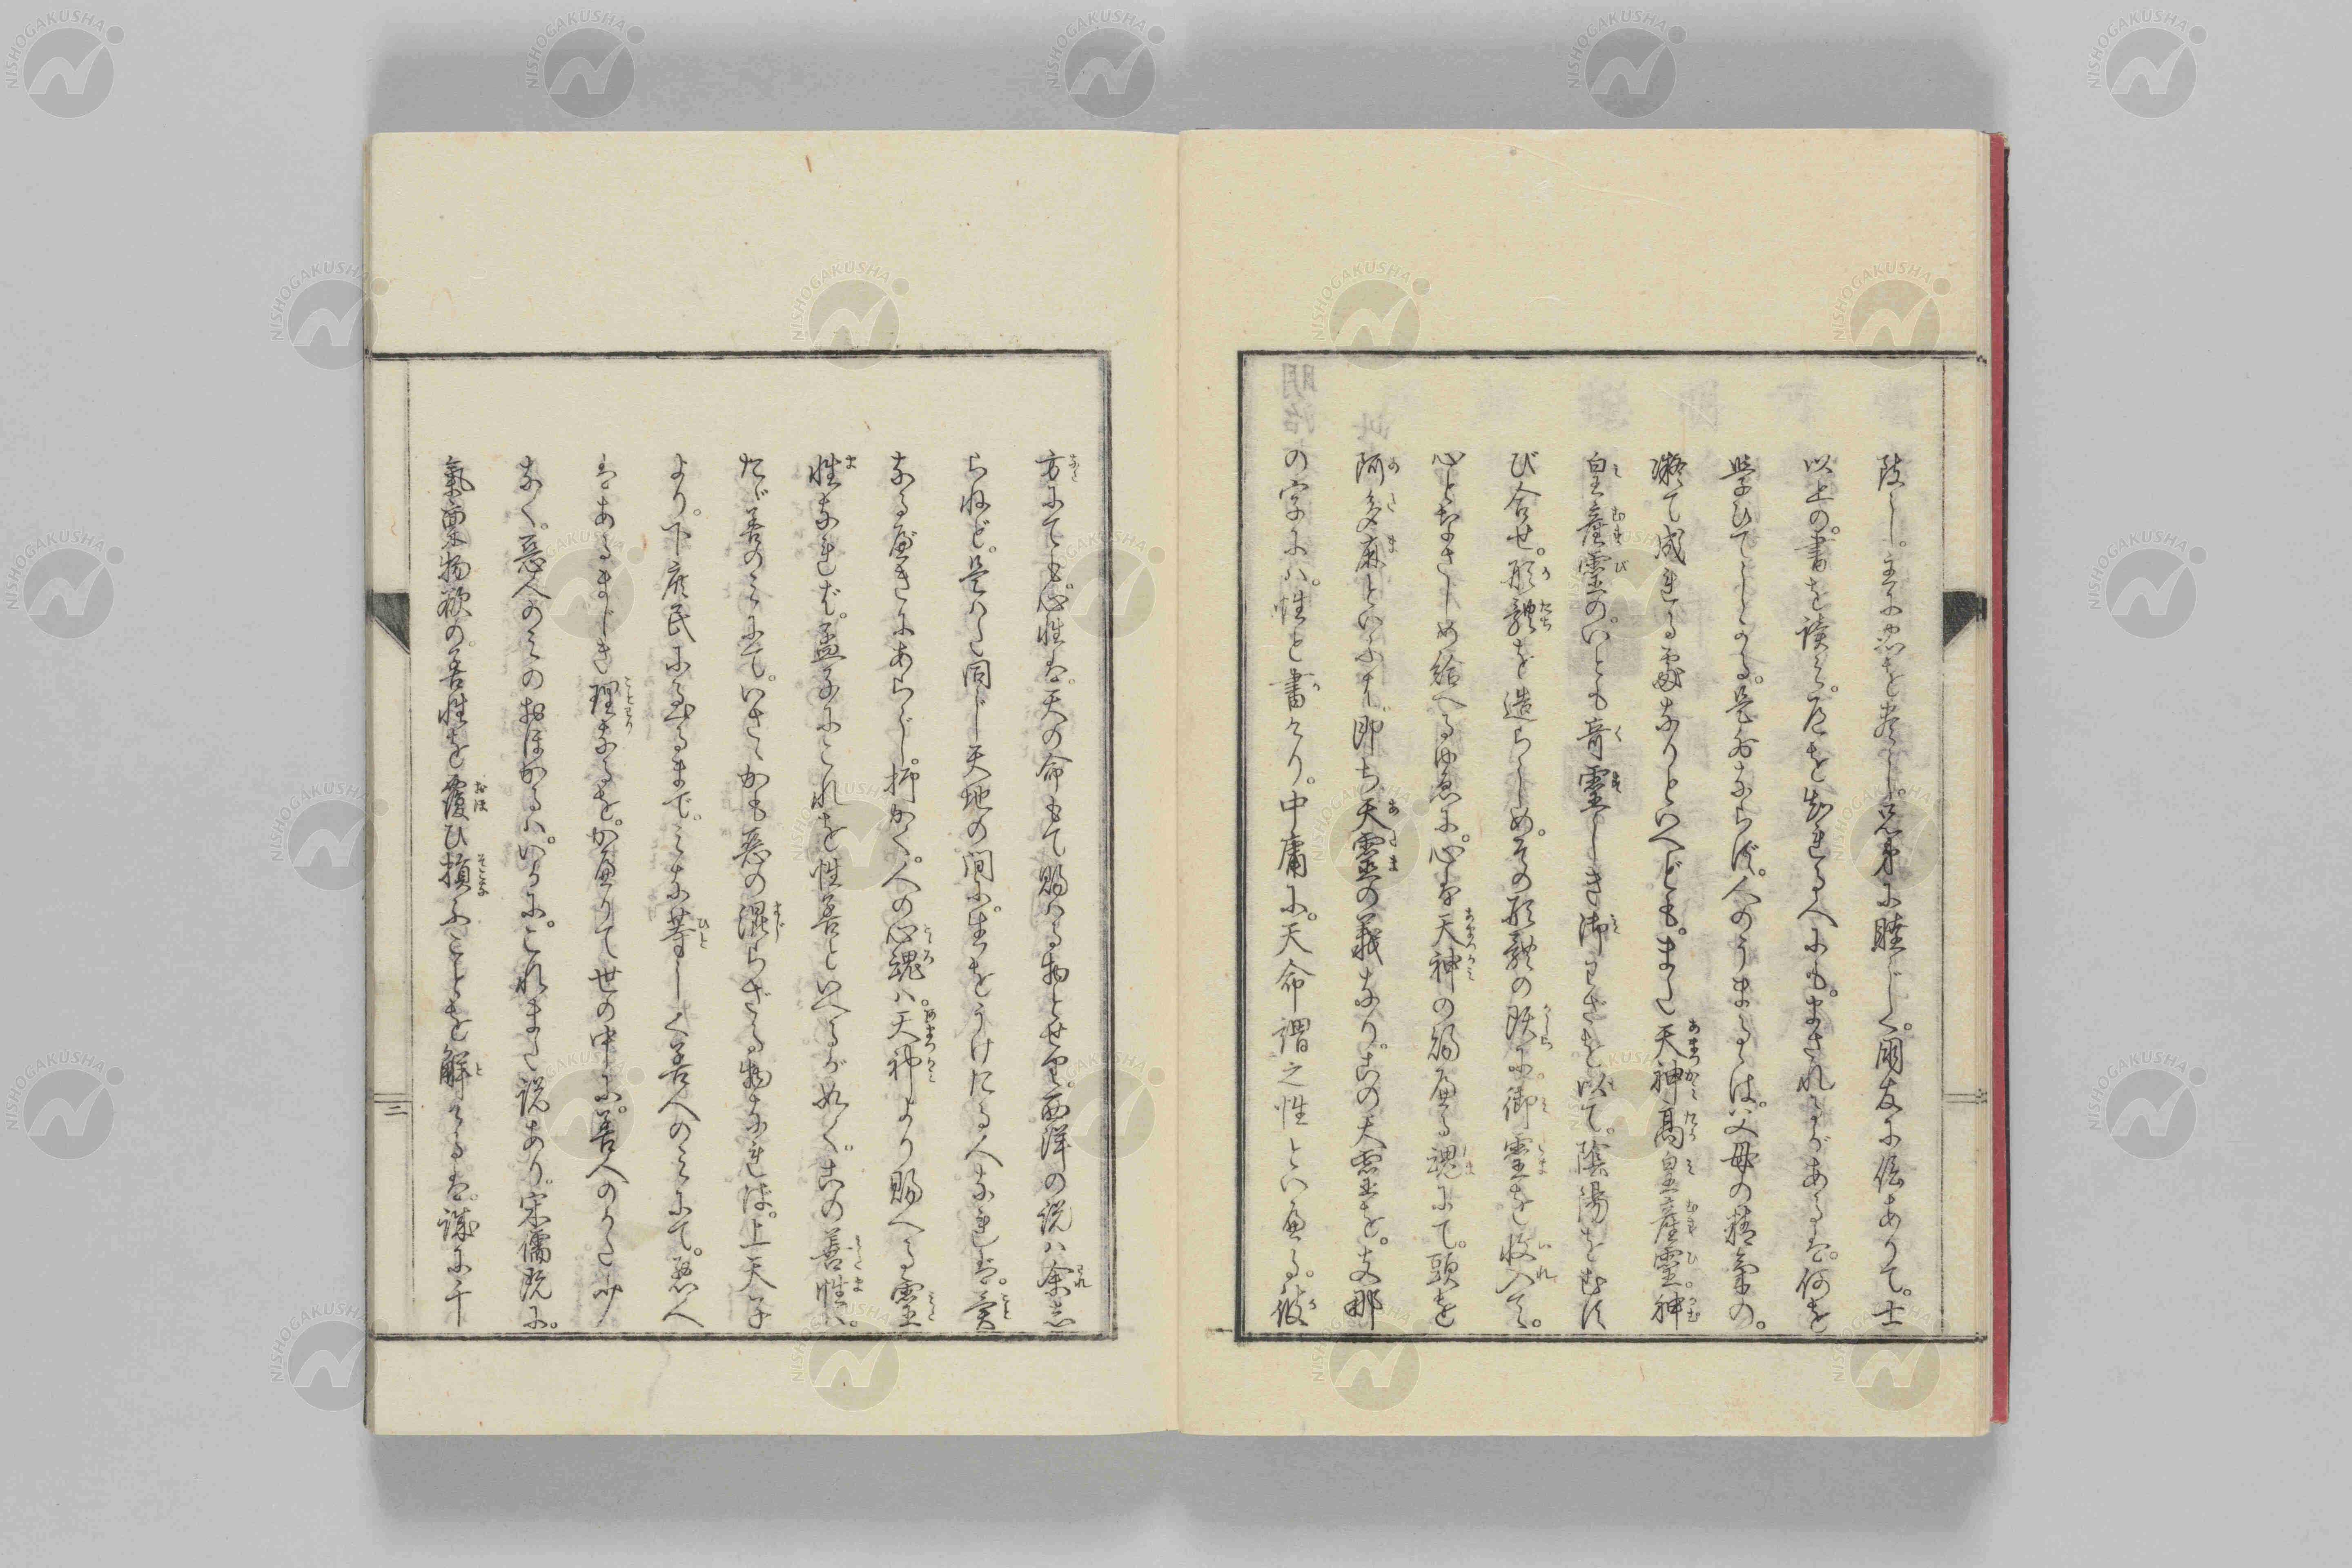 陵し。主に忠を尽し。兄弟に睦じく。朋友に信ありて。士
以上の。書を読み。道を知れる人にも。まされるがあるは。何を
学びてしかる。是ならず。人のうまるるは。父母の精気の。
凝て成れる處なりといへども。また天神高皇産靈神
皇産靈の。いとも奇靈しき御わざを以て。陰陽をむす
び合せ。形體を造らしめ。その形體の既に御靈を收入て。
心となさしめ給へるゆゑに。心は天神の賜へる魂にて。頭を
阿多麻といふは。即ち天靈の義なり。この天靈を。支那
の字には。性と書けり。中庸に。天命謂之性といへる。彼
方にても。心性は。天の命もて賜はる物とせり。西洋の説は余知
らねど。是はた同じ天地の間に。生をうけたる人なれば。異
なるべきにあらじ。抑かく。人の心魂は。天神より賜へる靈
性なれば。孟子にこれを性善といへるが如く。この善性は。
ただ善のみにて。いささかも惡の混らざる物なれば。上天子
より。下庶民に至るまで。みな等しく善人のみにて。惡人
はあるまじき理なるを。かへりて世の中に。善人のかた少
なく。惡人のみのおほかるは。いかに。これまた説あり。宋儒既に。
氣稟物欲の。善性を覆ひ損ふことを解けるは。誠に千
NISHOGAKUSHA